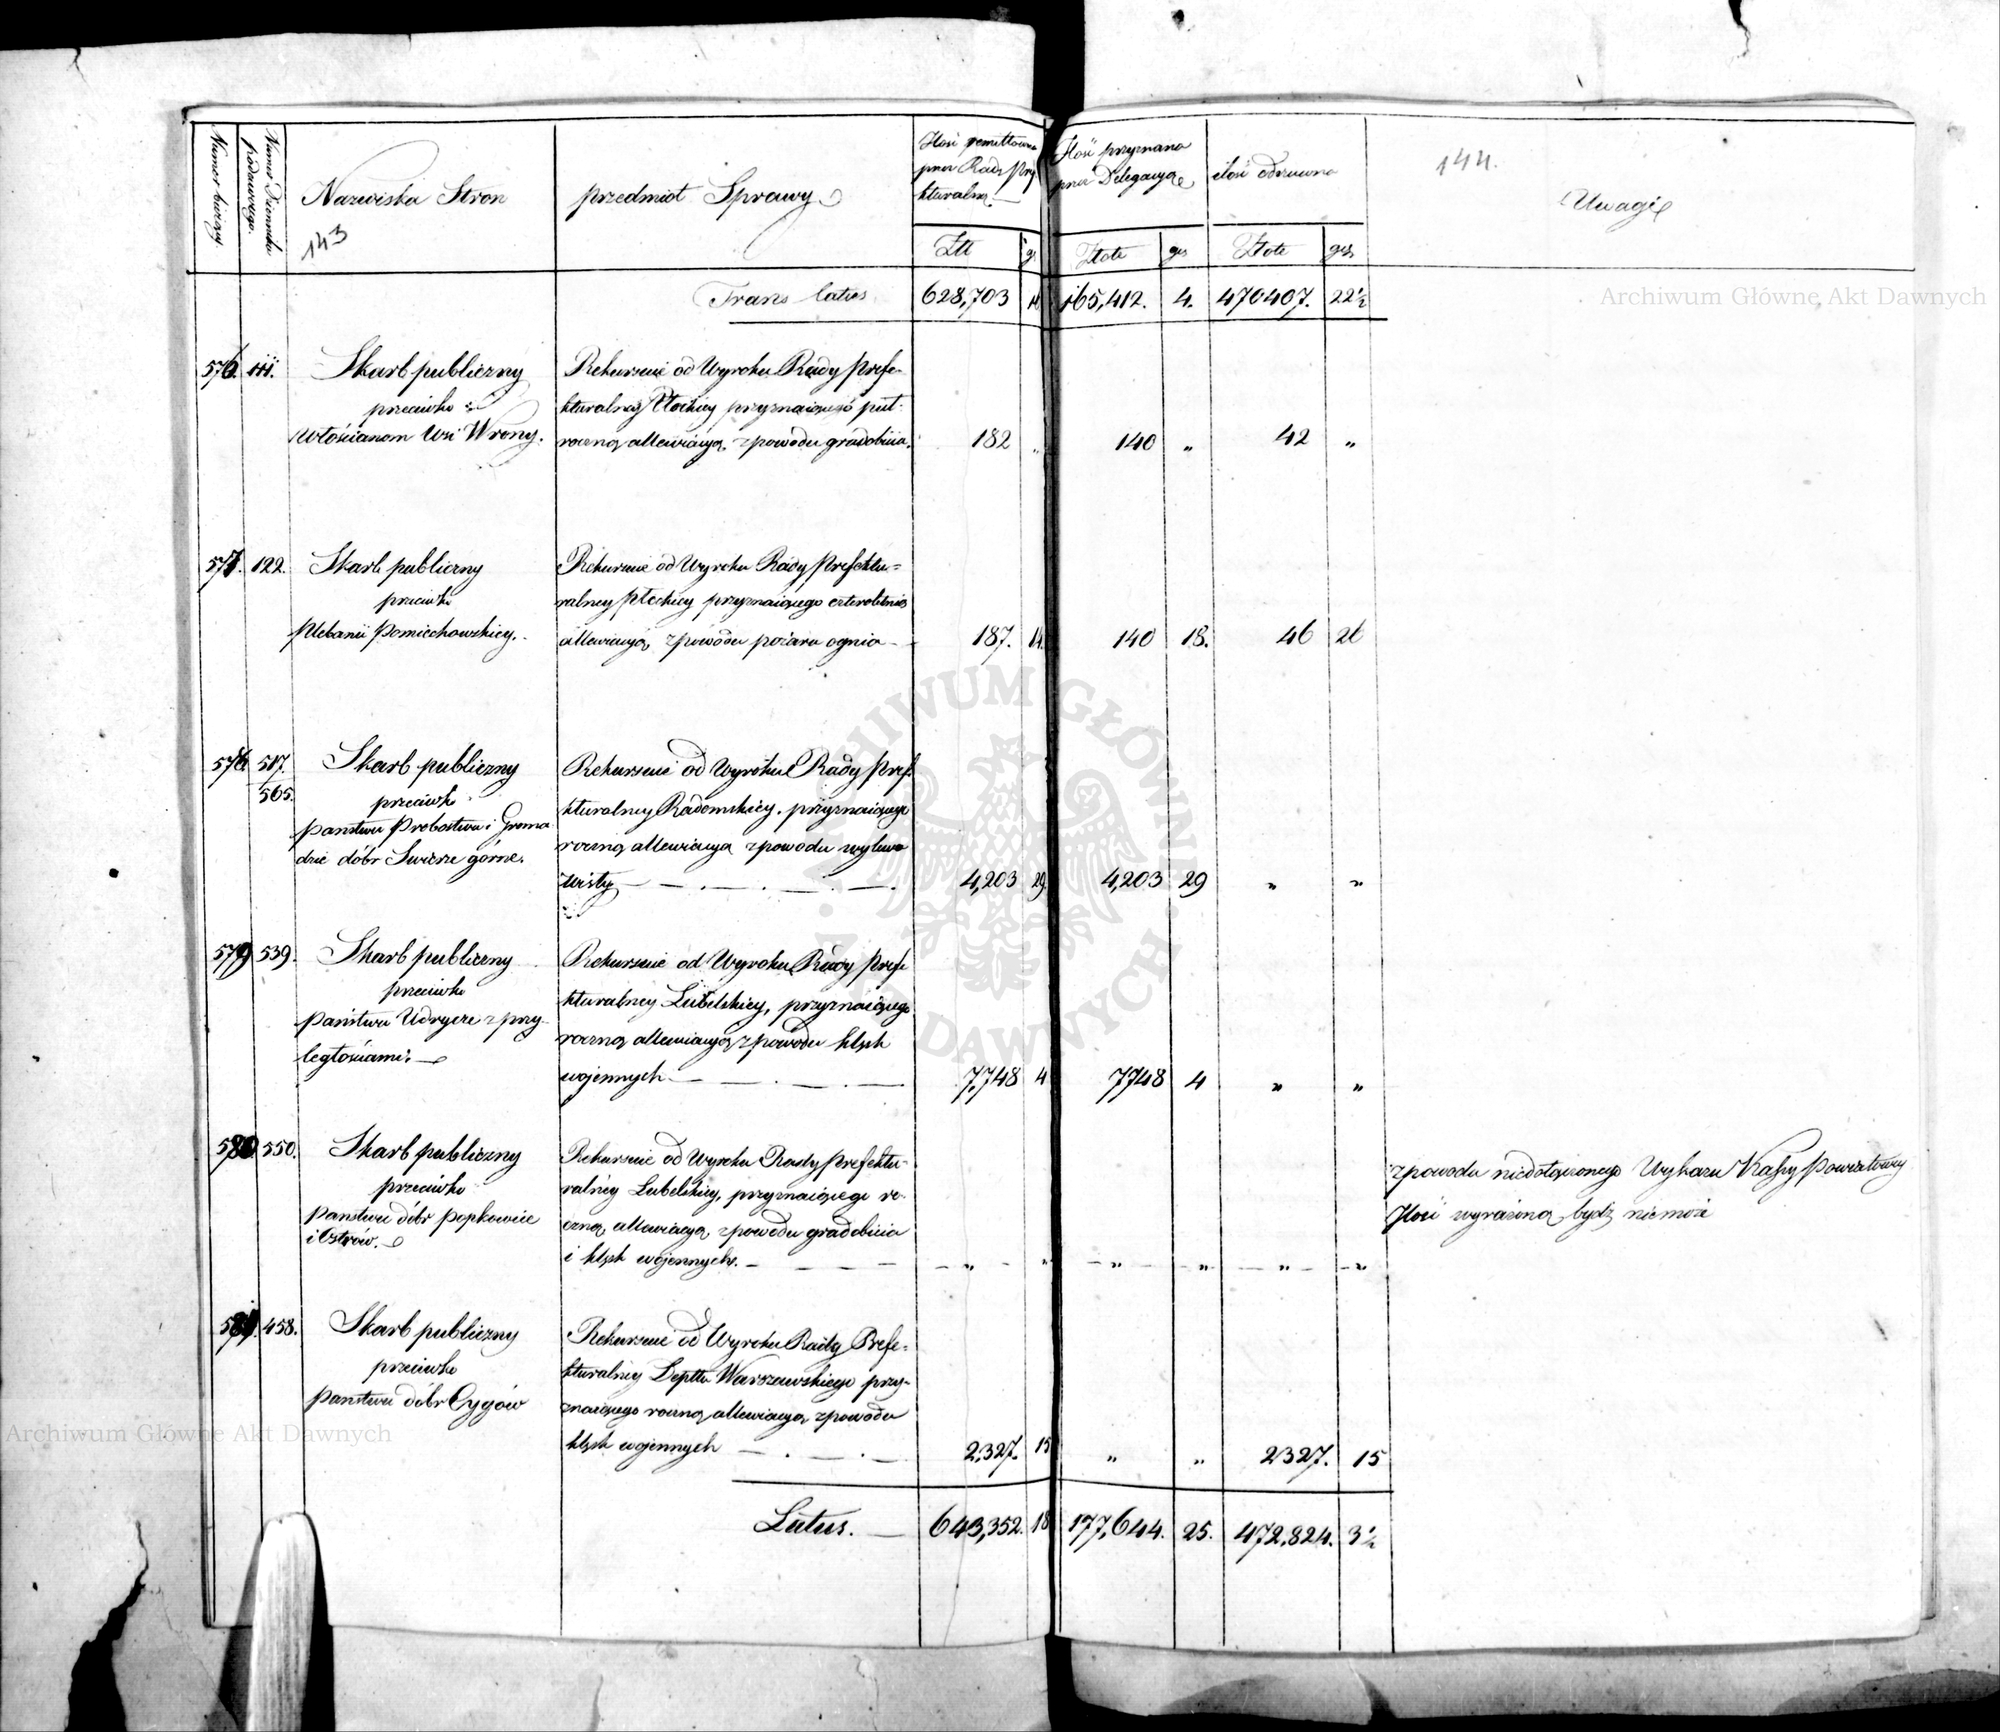 Numer bieżący.
Numer Dziennika podawczego.
Nazwiska Stron
143
przedmiot Sprawy
przez Rady Pre
kturalną.
Ilość przyznana
przez Delegacyą
ilość odrzucona
144.
Uwagi
Złt
gr
Złote
grs
Złote
grs
Trans latus 628,703 165,412. 4. 470407. 22½
Archiwum Główne Akt Dawnych
576. 111. Skarb publiczny
przeciwko
Włościanom Wsi Wrony.
Rekursuie od Wyroku Rady Prefe-
kturalney Płockiey przyznaiącego puł-
roczną allewiacyą z powodu gradobicia. 182 „ 140 „ 42 „
577. 122. Skarb publiczny
przeciwko
Plebanii Pomiechowskiey.
Rekursuie od Wyroku Rady Prefektu=
ralney Płockiey przyznaiącego czteroletnią
allewiacyą, z powodu pożaru ognia 187. 14. 140 18. 46 26
578. 517.
565.
Skarb publiczny
przeciwko
Państwu Probostwu i Groma
dzie dóbr Swierze górne.
Rekursuie od Wyroku Rady Pref.
kturalney Radomskiey, przyznaiącego
roczną allewiacyą z powodu wylewu
Wisły 4,203 29. 4,203 29 „ „
579 539. Skarb publiczny
przeciwko
Państwu Udrycze z przy-
ległościami.
Rekursuie od Wyroku Rady Prefe
kturalney Lubelskiey, przyznaiącego
roczną allewiacyą z powodu klęsk
wojennych 7,748 4 7748 4 „ „
580 550. Skarb publiczny
przeciwko
Państwu dóbr Popkowice
i Ostrów.
Rekursuie od Wyroku Rady Prefektu-
ralney Lubelskiey, przyznaiącego ro-
czną allewiacyą z powodu gradobicia
i klęsk wojennych. „ „ „ „ „ „
z powodu niedołączonego Wykazu Kassy Powiatowey
Ilość wyrażoną bydź niemoże
581. 458. Skarb publiczny
przeciwko
Państwu dóbr Cygów
Rekursuie od Wyroku Rady Prefe-
kturalney Depttu Warszawskiego przy-
znaiącego roczną allewiacyą z powodu
klęsk wojennych 2,327. 15 „ „ 2327. 15
Archiwum Główne Akt Dawnych
Latus. 643,352. 18 177,644. 25. 472,824. 3½
ARCHIWUM GŁÓWNE AKT DAWNYCH